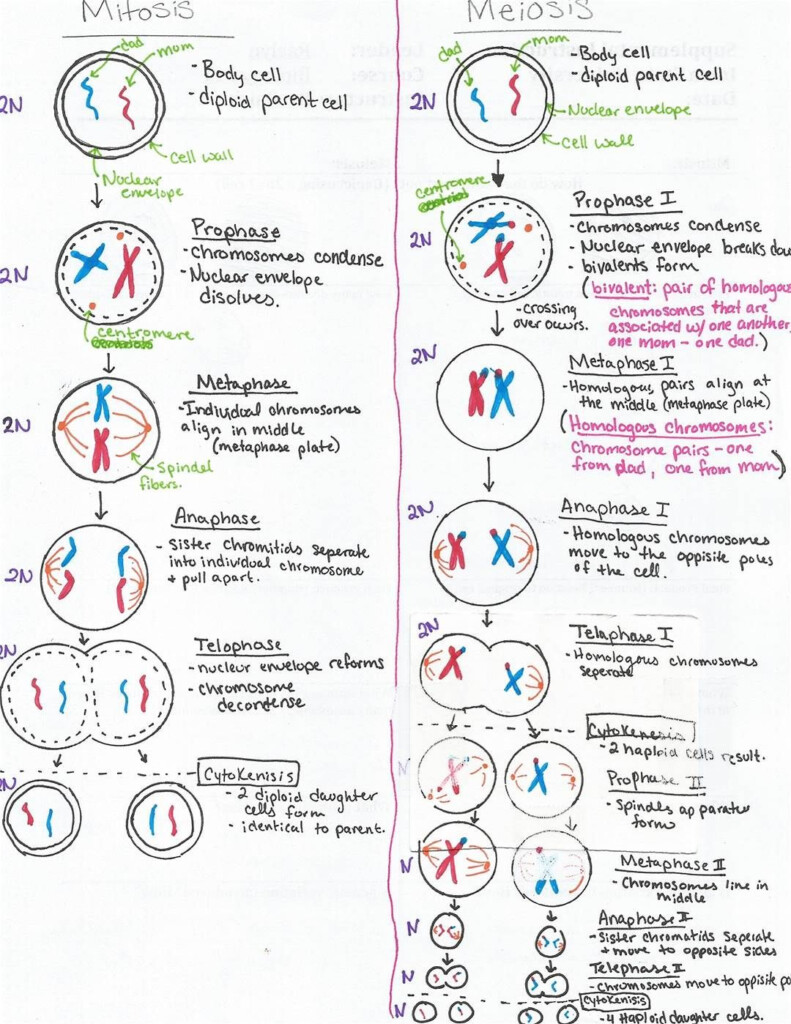 Mitosis
dad
mom
2N
- Body cell
- diploid parent cell
Cell wall
Nuclear
envelope
2N
Prophase
- Chromosomes condense
- Nuclear envelope
disolves.
centromere
2N
Metaphase
- Individual chromosomes
align in middle
(metaphase plate)
Spindel
fibers.
2N
Anaphase
- Sister Chromitids seperate
into individual chromosome
+ pull apart.
2N
Telophase
- nuclear envelope reforms
- chromosome
decondense
2N
Cytokenisis
- 2 diploid daughter
cells form
- identical to parent.
Meiosis
dad
mom
2N
- Body cell
- diploid parent cell
Nuclear envelope
Cell wall
centromere
2N
Prophase I
- Chromosomes condense
- Nuclear envelope breaks
- bivalents form
(bivalent: pair of homologous
chromosomes that are
associated w/ one another,
one mom - one dad.)
- crossing
over occurs.
2N
Metaphase I
- Homologous pairs align at
the middle (metaphase plate)
(Homologous chromosomes:
chromosome pairs - one
from dad, one from mom)
2N
Anaphase I
- Homologous chromosomes
move to the opposite poles
of the cell.
2N
Telaphase I
- Homologous chromosomes
seperate
Cytokenesis
- 2 haploid cells result.
N
Prophase II
- Spindles apparatus
form
N
Metaphase II
- Chromosomes line in
middle
N
Anaphase II
- Sister chromatids seperate
+ move to opposite sides
N
Telephase II
- Chromosomes move to oppisite
N
Cytokenisis
- 4 Haploid daughter cells.